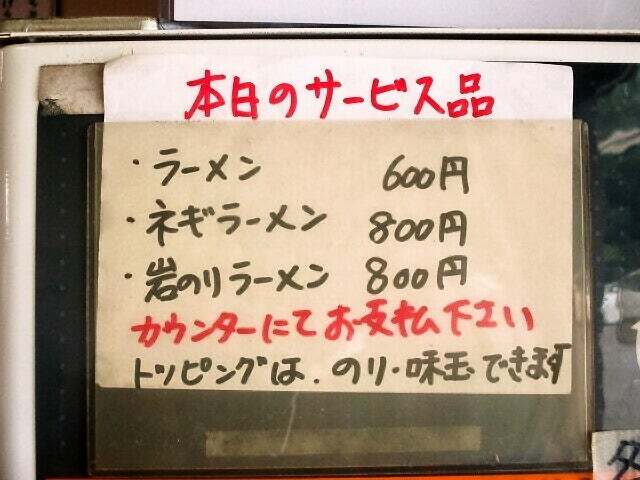 本日のサービス品
・ラーメン 600円
・ネギラーメン 800円
・岩のりラーメン 800円
カウンターにてお支払下さい
トッピングは、のり・味玉できます